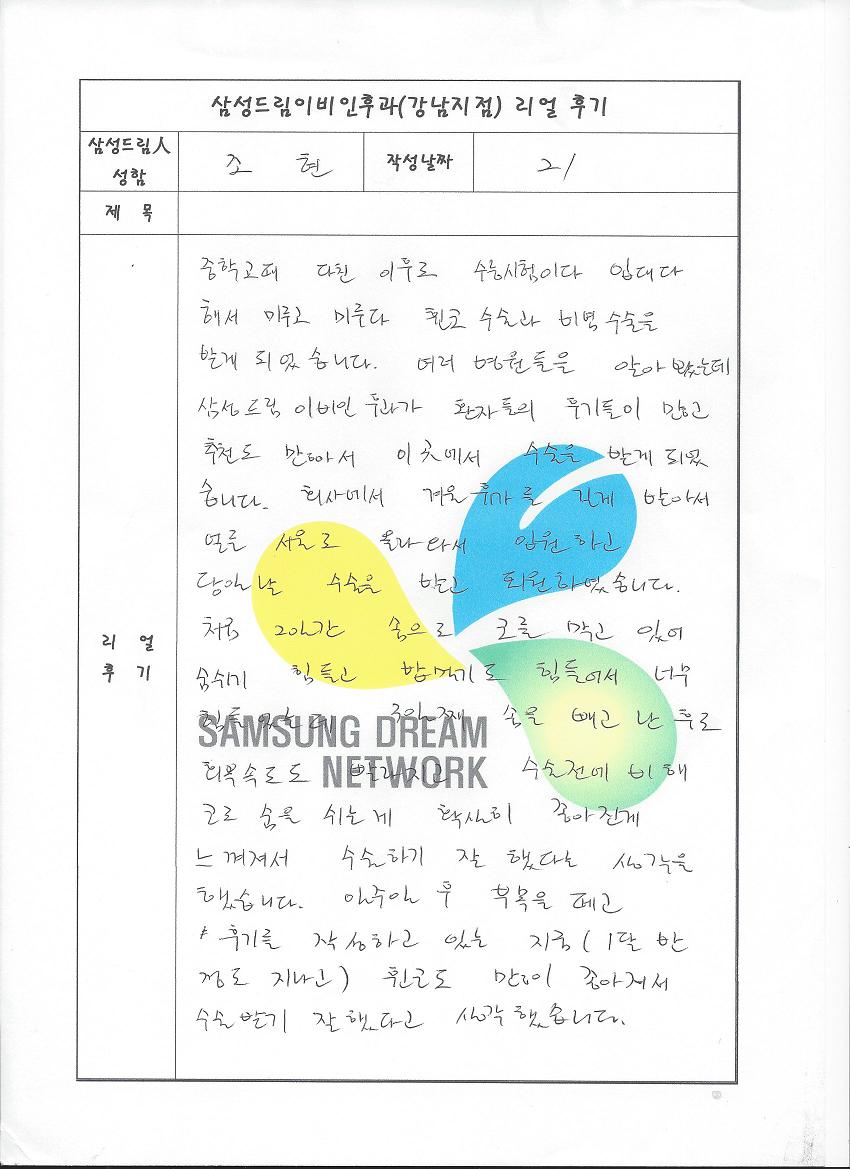 삼성드림이비인후과(강남지점) 리얼 후기
삼성드림人 성함 조 현 작성날짜 21
제 목
리 얼 후 기
중학교때 다친 이후로 수능시험이다 입대다
해서 미루고 미루다 휜코 수술과 비벽수술을
받게 되었습니다. 여러 병원들을 알아봤는데
삼성드림이비인후과가 환자들의 후기들이 많고
추천도 많아서 이곳에서 수술을 받게되었
습니다. 회사에서 겨울휴가를 길게 받아서
얼른 서울로 올라와서 입원하고
당일날 수술을 받고 퇴원하였습니다.
처음 2일간 솜으로 코를 막고 있어
숨쉬기 힘들고 밥먹기도 힘들어서 너무
힘들었는데 3일째 솜을 빼고 난 후로
회복속도도 빨라지고 수술전에 비해
코로 숨을 쉬는게 확실히 좋아진게
느껴져서 수술하기 잘 했다는 생각을
했습니다. 일주일 후 부목을 떼고
후기를 작성하고 있는 지금(1달 반
정도 지나고) 휜코도 많이 좋아져서
수술받기 잘했다고 생각했습니다.
SAMSUNG DREAM
NETWORK